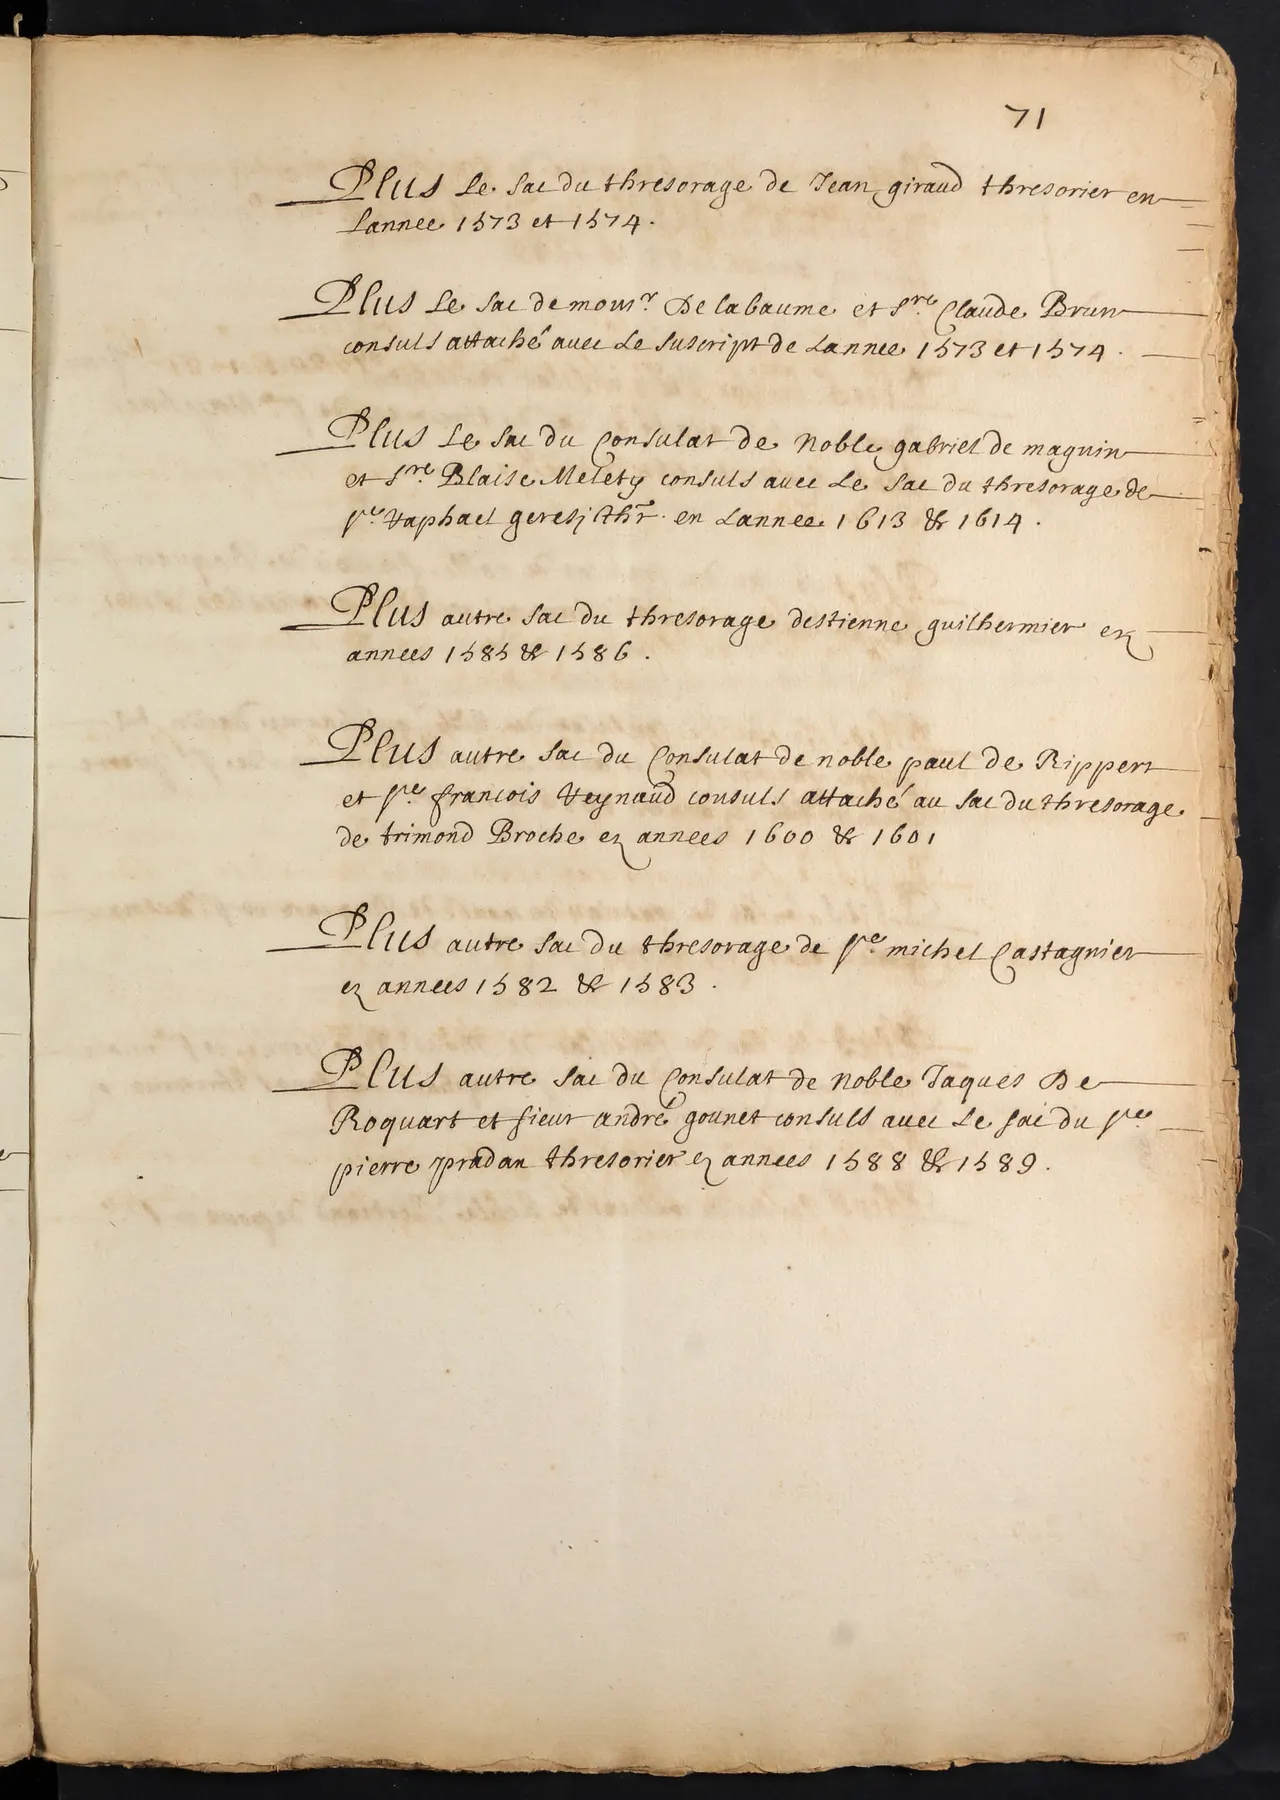 71
Plus Le sac du thresorage de Jean giraud thresorier en
Lannee 1573 et 1574.
Plus Le sac de mons.r De labaume et s.re Claude Brun
consuls attaché avec Le suscript de Lannee 1573 et 1574.
Plus Le sac du Consulat de noble gabriel de maguin
et s.re Blaise Melety consuls avec Le sac du thresorage de
s.r Raphael geresi thr. en Lannee 1613 & 1614.
Plus autre sac du thresorage destienne guilhermier ez
annees 1585 & 1586.
Plus autre sac du Consulat de noble paul de Rippert
et s.r francois Reynaud consuls attaché au sac du thresorage
de trimond Broche ez annees 1600 & 1601
Plus autre sac du thresorage de s.r michel Castagnier
ez annees 1582 & 1583.
Plus autre sac du Consulat de noble Jaques De
Roquart et sieur andré gounet consuls avec Le sac du s.r
pierre pradan thresorier ez annees 1588 & 1589.